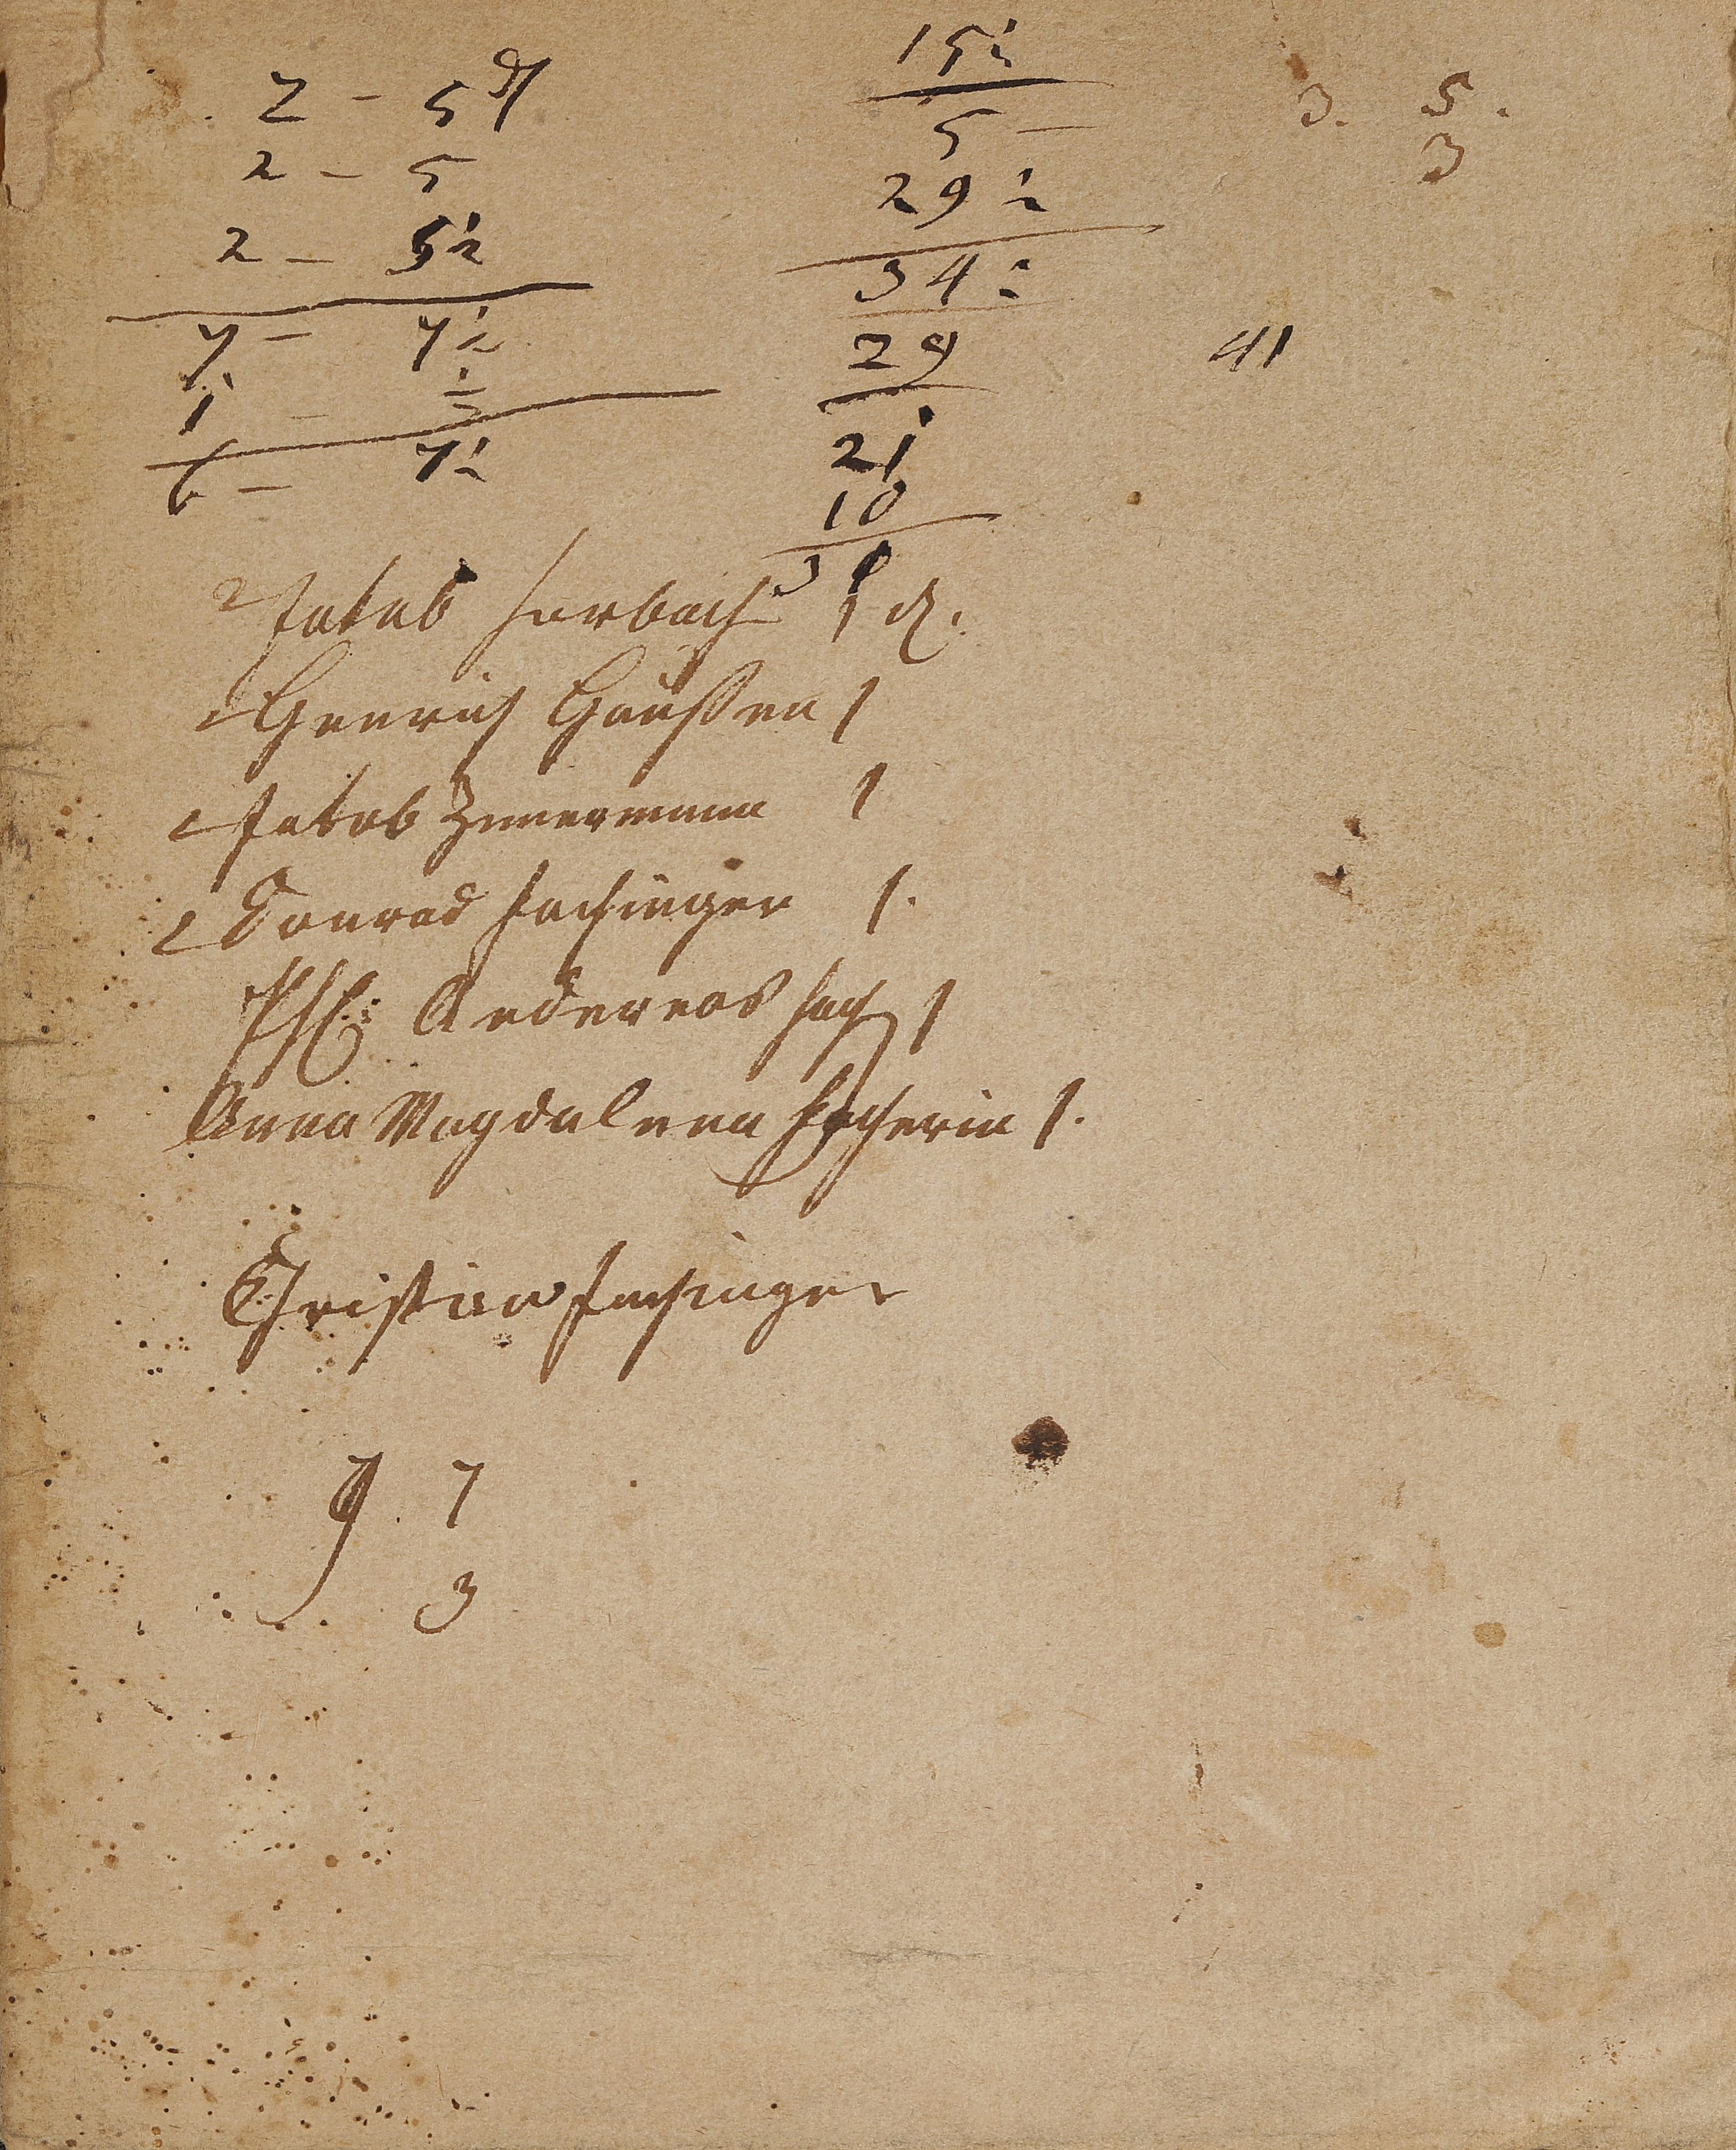 2 - 5
2 - 5
2 - 5½
7 - 7½
1 - ½
6 - 7½
15½
5 -
29½
34½
29
21
10
31
3. 5.
3
41
Jakob Horbach 1
Henrich Haußen 1
Jakob Zimermann 1
Conrad Hachinger 1.
Phl: Andereas Hach 1
Anna Magdalena Hacherin 1.
Christian Hachinger
7
3